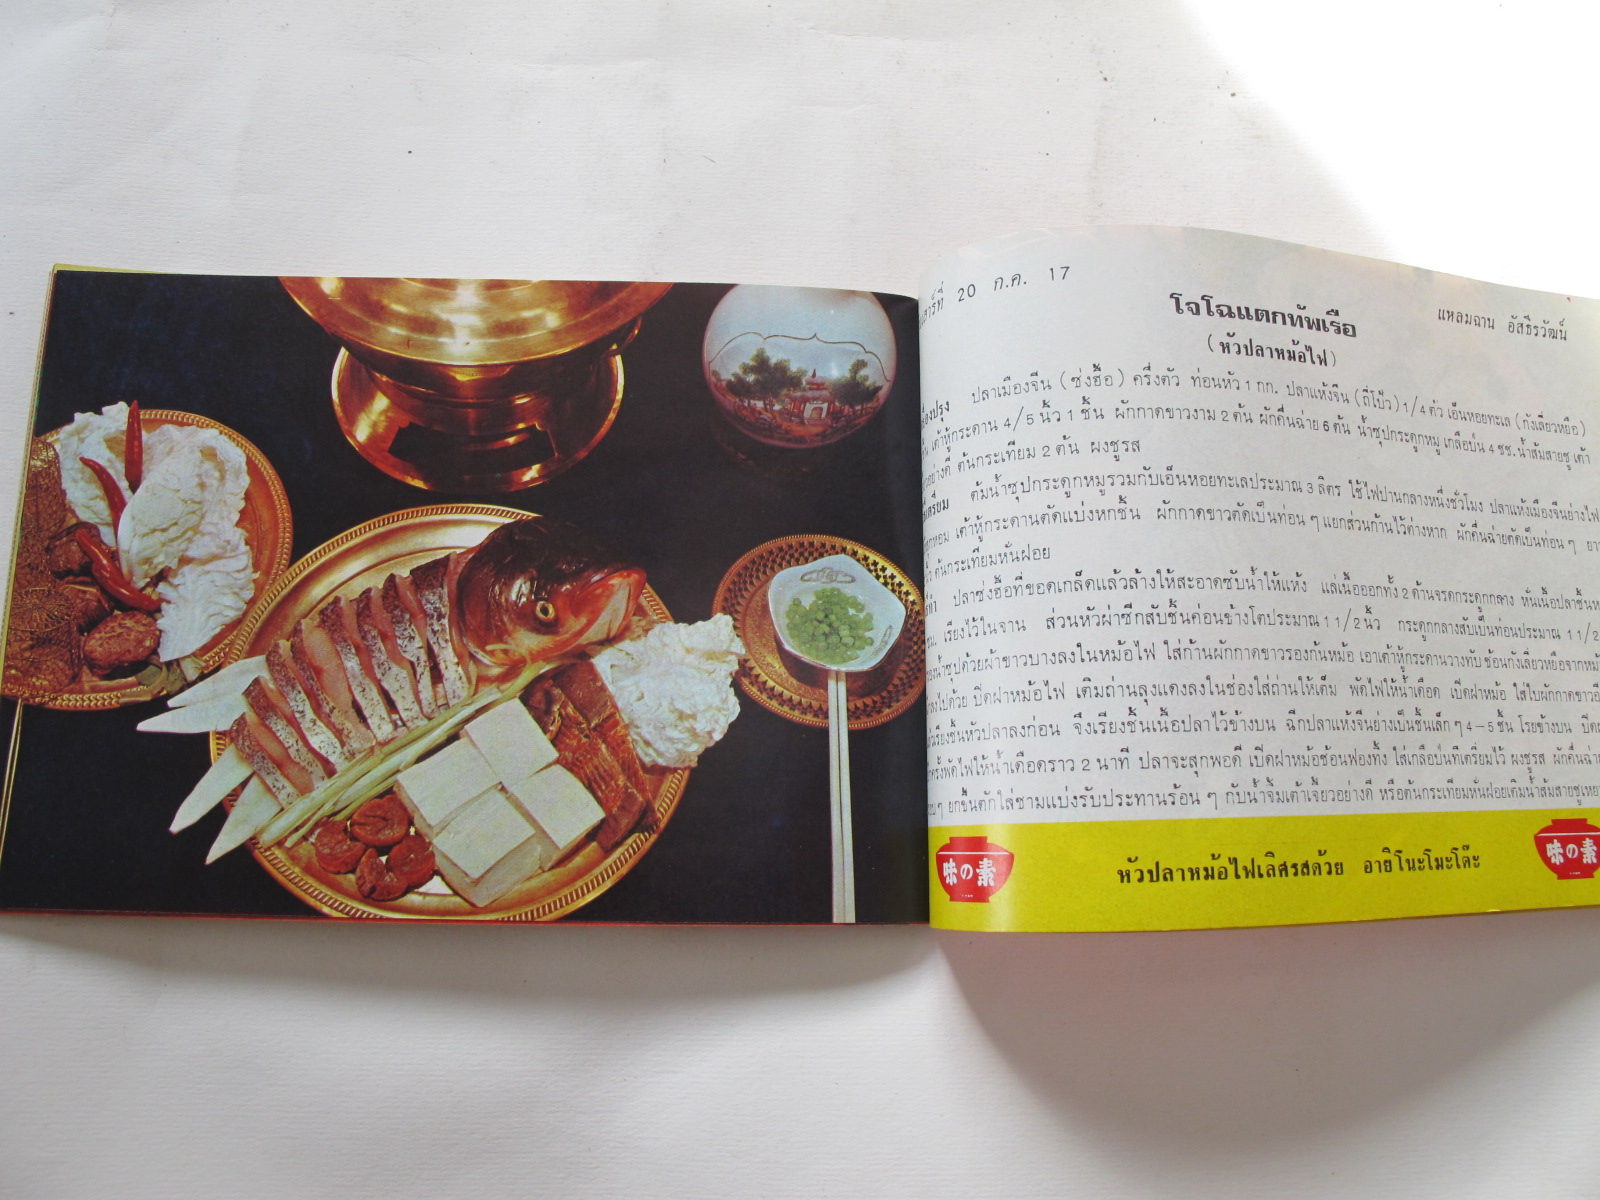 20 ก.ค. 17
โจโฉแตกทัพเรือ
แหลมฉาน อัสธีรวัฒน์
(หัวปลาหม้อไฟ)
ปลาเมืองจีน (ซ่งฮื้อ) ครึ่งตัว ท่อนหัว 1 กก. ปลาแห้งจีน (ถี่โป๊ว) 1/4 ตัว เอ็นหอยทะเล (กังเลี่ยวหยือ)
เต้าหู้กระดาน 4/5 นิ้ว 1 ชิ้น ผักกาดขาวงาม 2 ต้น ผักคื่นฉ่าย 6 ต้น น้ำซุปกระดูกหมู เกลือป่น 4 ชช. น้ำส้มสายชู เต้า
อย่างดี ต้นกระเทียม 2 ต้น ผงชูรส
ต้มน้ำซุปกระดูกหมูรวมกับเอ็นหอยทะเลประมาณ 3 ลิตร ใช้ไฟปานกลางหนึ่งชั่วโมง ปลาแห้งเมืองจีนย่างไฟ
เต้าหู้กระดานตัดแบ่งหกชิ้น ผักกาดขาวตัดเป็นท่อน ๆ แยกส่วนก้านไว้ต่างหาก ผักคื่นฉ่ายตัดเป็นท่อน ๆ
ต้นกระเทียมหั่นฝอย
ปลาซ่งฮื้อที่ขอดเกล็ดแล้วล้างให้สะอาดซับน้ำให้แห้ง แล่เนื้อออกทั้ง 2 ด้านจรดกระดูกกลาง หั่นเนื้อปลาชิ้น
ซม. เรียงไว้ในจาน ส่วนหัวผ่าซีกสับชิ้นค่อนข้างโตประมาณ 1 1/2 นิ้ว กระดูกกลางสับเป็นท่อนประมาณ 1 1/2
น้ำซุปด้วยผ้าขาวบางลงในหม้อไฟ ใส่ก้านผักกาดขาวรองก้นหม้อ เอาเต้าหู้กระดานวางทับ ช้อนกังเลี่ยวหยือจาก
ลงไปด้วย ปิดฝาหม้อไฟ เติมถ่านลุงแดงลงในช่องใส่ถ่านให้เต็ม พัดไฟให้น้ำเดือด เปิดฝาหม้อ ใส่ใบผักกาดขาว
เรียงชิ้นหัวปลาลงก่อน จึงเรียงชิ้นเนื้อปลาไว้ข้างบน ฉีกปลาแห้งจีนย่างเป็นชิ้นเล็ก ๆ 4 – 5 ชิ้น โรยข้างบน
พัดไฟให้น้ำเดือดราว 2 นาที ปลาจะสุกพอดี เปิดฝาหม้อช้อนฟองทิ้ง ใส่เกลือป่นที่เตรียมไว้ ผงชูรส
ยกขึ้นตักใส่ชามแบ่งรับประทานร้อน ๆ กับน้ำจิ้มเต้าเจี้ยวอย่างดี หรือต้นกระเทียมหั่นฝอยเติมน้ำส้มสายชู
味の素
หัวปลาหม้อไฟเลิศรสด้วย อายิโนะโมะโต๊ะ
味の素